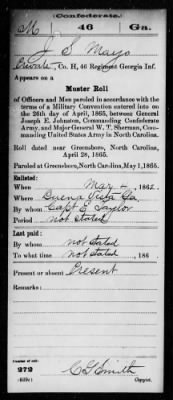 Confederate.
M 46 Ga.
J S Mayo
Private, Co. H, 46 Regiment Georgia Inf.
Appears on a
Muster Roll
of Officers and Men paroled in accordance with the
terms of a Military Convention entered into on
the 26th day of April, 1865, between General
Joseph E. Johnston, Commanding Confederate
Army, and Major General W. T. Sherman, Com-
manding United States Army in North Carolina.
Roll dated near Greensboro, North Carolina,
April 28, 1865.
Paroled at Greensboro, North Carolina, May 1, 1865.
Enlisted:
When Mar 4, 1862.
Where Buena Vista Ga.
By whom Capt E Taylor
Period not stated
Last paid:
By whom not stated
To what time not stated, 186 .
Present or absent Present
Remarks:
Number of roll:
272
C G Smith
Copyist.